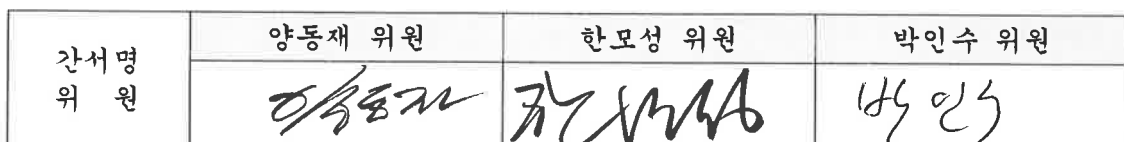 간서명
위 원
양동재 위원
한모성 위원
박인수 위원
양동재
한모성
박인수